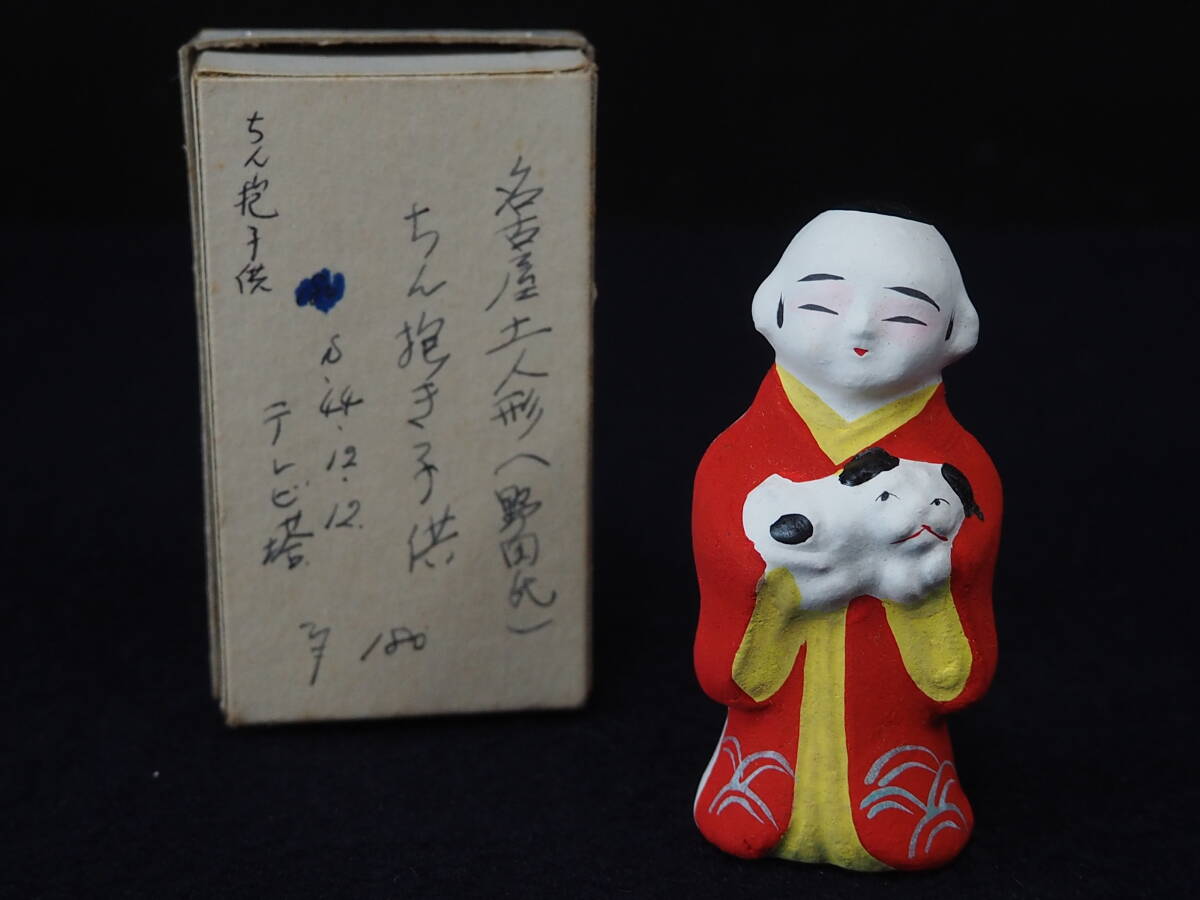 名古屋土人形(野田氏)
ちん抱き子供
S.44.12.12.
テレビ塔
¥180
ちん抱子供